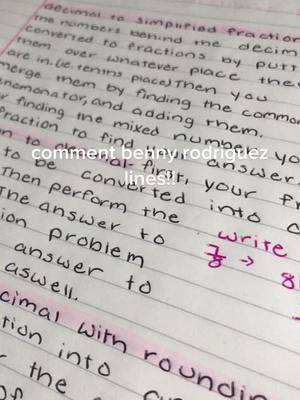 decimal to simplified fraction
the numbers behind the decim
converted to fractions by putt
them over whatever place the
are in. (i.e. tenths place) Then you
merge them by finding the common
denomonator, and adding them.
r finding the mixed number, yo
fraction to find your answer.
comment benny rodriguez
lines!!
First, your fr
to be converted into
Then perform the
The answer to
ion problem
answer to
aswell.
write
7/8 → 8
cimal with roundin
tion into
the